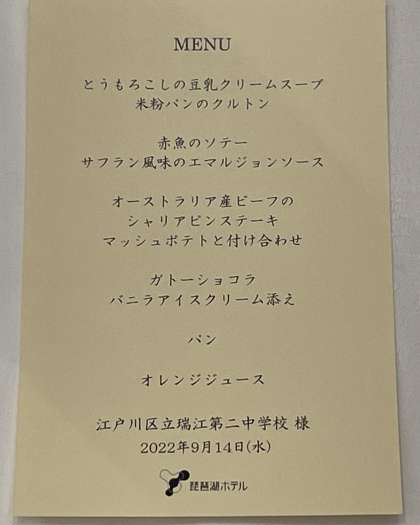 MENU
とうもろこしの豆乳クリームスープ
米粉パンのクルトン
赤魚のソテー
サフラン風味のエマルジョンソース
オーストラリア産ビーフの
シャリアピンステーキ
マッシュポテトと付け合わせ
ガトーショコラ
バニラアイスクリーム添え
パン
オレンジジュース
江戸川区立瑞江第二中学校 様
2022年9月14日(水)
琵琶湖ホテル